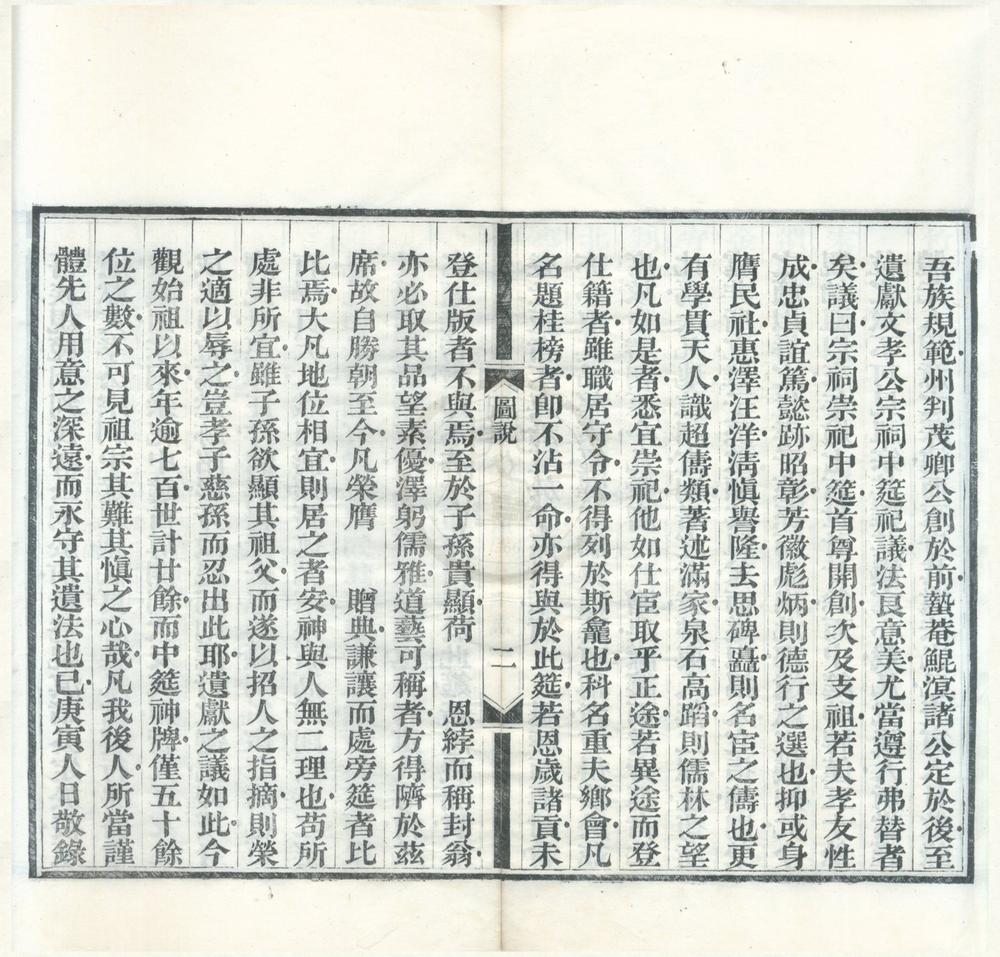 吾族規範州判茂卿公創於前蟄菴鯤溟諸公定於後至
遺獻文孝公宗祠中筵祀議法良意美尤當遵行弗替者
矣議曰宗祠崇祀中筵首尊開創次及支祖若夫孝友性
成忠貞誼篤懿跡昭彰芳徽彪炳則德行之選也抑或身
膺民社惠澤汪洋清慎譽隆去思碑矗則名宦之儔也更
有學貫天人識超儔類著述滿家泉石高蹈則儒林之望
也凡如是者悉宜崇祀他如仕宦取乎正途若異途而登
仕籍者雖職居守令不得列於斯龕也科名重夫鄉會凡
名題桂榜者卽不沾一命亦得與於此筵若恩歲諸貢未
圖說
二
登仕版者不與焉至於子孫貴顯荷 恩綍而稱封翁
亦必取其品望素優澤躬儒雅道藝可稱者方得隮於茲
席故自勝朝至今凡榮膺 贈典謙讓而處旁筵者比
比焉大凡地位相宜則居之者安神與人無二理也苟所
處非所宜雖子孫欲顯其祖父而遂以招人之指摘則榮
之適以辱之豈孝子慈孫而忍出此耶遺獻之議如此今
觀始祖以來年逾七百世計廿餘而中筵神牌僅五十餘
位之數不可見祖宗其難其愼之心哉凡我後人所當謹
體先人用意之深遠而永守其遺法也已庚寅人日敬錄